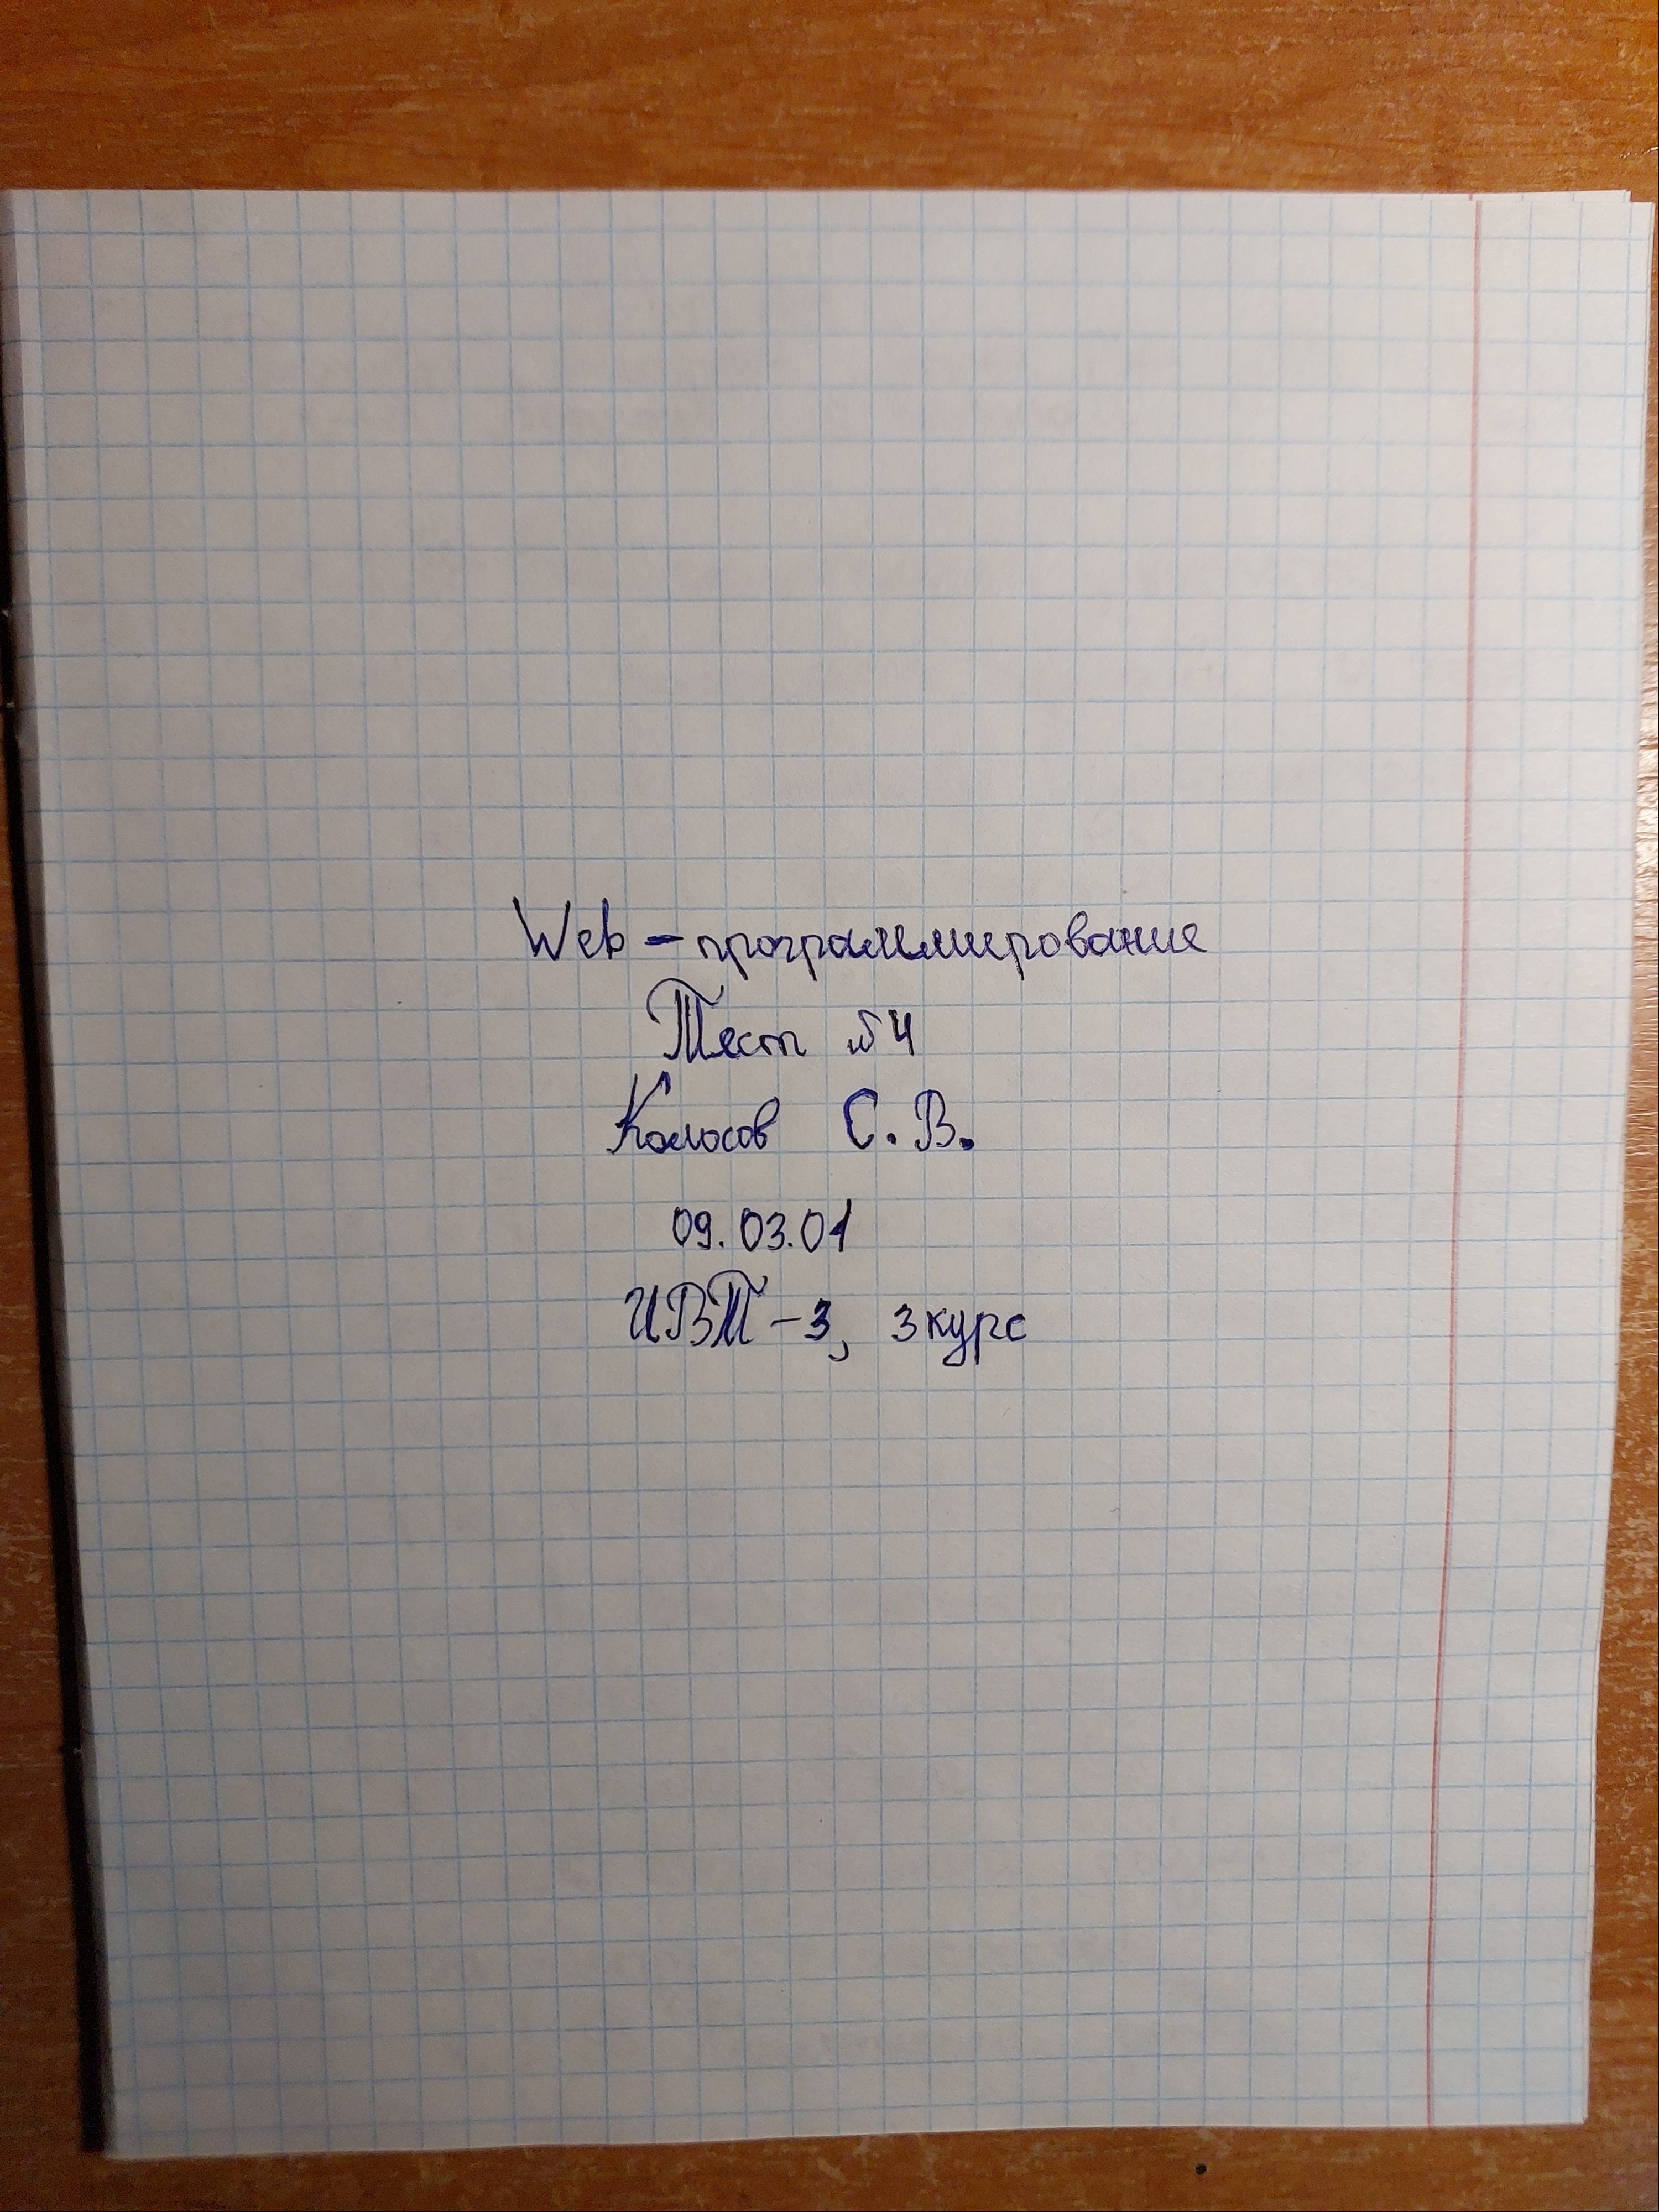 Web-программирование
Тест №4
Колосов С.В.
09.03.01
ИВТ-3, 3 курс